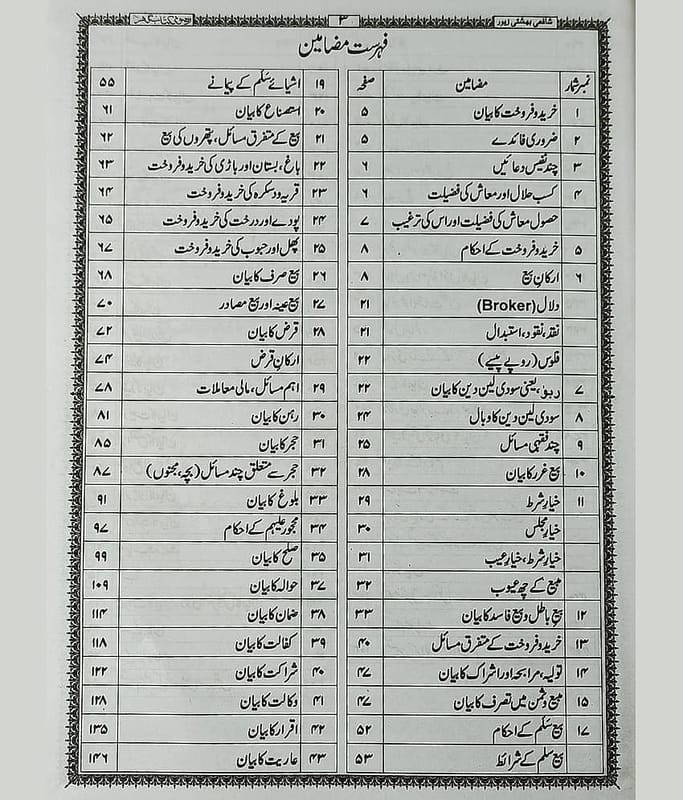 شافعی بہشتی زیور
۳
فہرست مضامین
نمبر شمار مضامین صفحہ
۱ خرید و فروخت کا بیان ۵
۲ ضروری فائدے ۵
۳ چند نفیس دعائیں ۶
۴ کسب حلال اور معاش کی فضیلت ۶
حصول معاش کی فضیلت اور اس کی ترغیب ۷
۵ خرید و فروخت کے احکام ۸
۶ ارکان بیع ۸
دلال (Broker) ۲۱
نقد، نقود، استبدال ۲۱
فلوس (روپے پیسے) ۲۲
۷ ربوٰ، یعنی سودی لین دین کا بیان ۲۲
۸ سودی لین دین کا وبال ۲۴
۹ چند فقہی مسائل ۲۵
۱۰ بیع غرر کا بیان ۲۸
۱۱ خیار شرط ۲۹
خیار مجلس ۳۰
خیار شرط، خیار عیب ۳۱
مبیع کے چھ عیوب ۳۲
۱۲ بیع باطل و بیع فاسد کا بیان ۳۳
۱۳ خرید و فروخت کے متفرق مسائل ۴۰
۱۴ تولیہ، مرابحہ اور اشراک کا بیان ۴۷
۱۵ مبیع و ثمن میں تصرف کا بیان ۴۷
۱۷ بیع سَلَم کے احکام ۵۲
بیع سلم کے شرائط ۵۳
۱۹ اشیائے سَلَم کے پیمانے ۵۵
۲۰ استصناع کا بیان ۶۱
۲۱ بیع کے متفرق مسائل، پتھروں کی بیع ۶۲
۲۲ باغ، بستان اور باڑی کی خرید و فروخت ۶۳
۲۳ قریہ و دسکرہ کی خرید و فروخت ۶۴
۲۴ پودے اور درخت کی خرید و فروخت ۶۵
۲۵ پھل اور حبوب کی خرید و فروخت ۶۷
۲۶ بیع صرف کا بیان ۶۸
۲۷ بیع عینہ اور بیع مصادر ۷۰
۲۸ قرض کا بیان ۷۲
ارکان قرض ۷۴
۲۹ اہم مسائل، مالی معاملات ۷۸
۳۰ رہن کا بیان ۸۱
۳۱ حجر کا بیان ۸۵
۳۲ حجر سے متعلق چند مسائل (بچہ، مجنوں) ۸۷
۳۳ بلوغ کا بیان ۹۱
۳۴ محجور علیہم کے احکام ۹۷
۳۵ صلح کا بیان ۹۹
۳۷ حوالہ کا بیان ۱۰۹
۳۸ ضمان کا بیان ۱۱۴
۳۹ کفالت کا بیان ۱۱۸
۴۰ شراکت کا بیان ۱۲۲
۴۱ وکالت کا بیان ۱۲۸
۴۲ اقرار کا بیان ۱۳۵
۴۳ عاریت کا بیان ۱۴۶